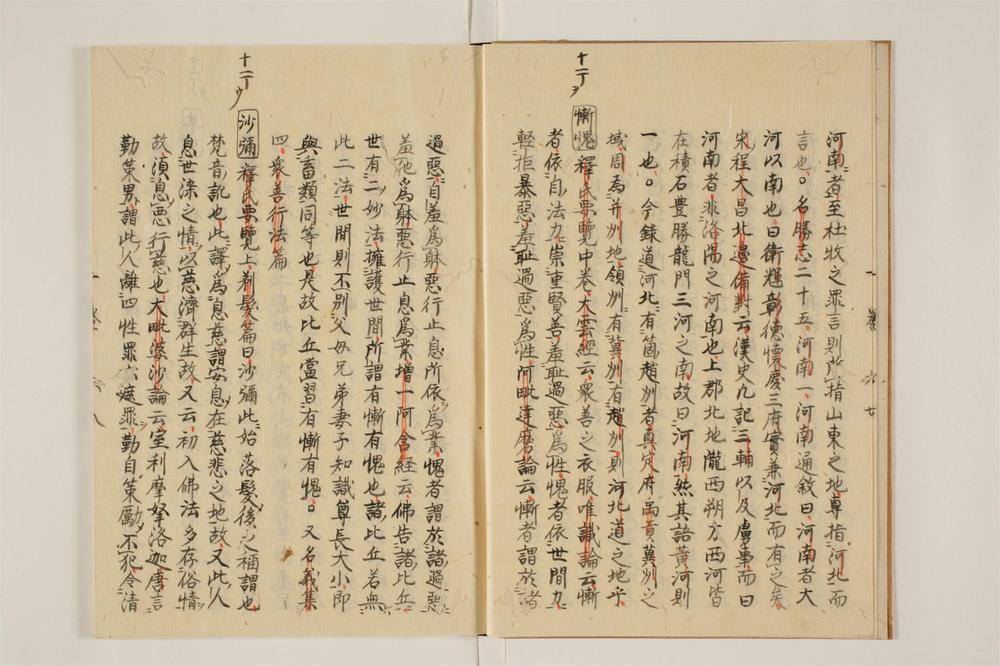 河南者至杜牧之罪言則所指山東之地尊指河北而
言也。名勝志二十五河南一河南通敘曰河南者大
河以南也曰衛輝彰德懷慶三府實兼河北而有之矣
宋程大昌北邊備對云漢史凡記三輔以及虜事而曰
河南者非洛陽之河南也上郡北地隴西朔方西河皆
在積石豊勝龍門三河之南故曰河南然其語黃河則
一也。今錄道河北有箇趙州者真定府禹貢冀州之
域周為并州地領州有冀州有趙州則河北道之地乎
慚愧 釋氏要覽中卷大雲經云衆善之衣服唯識論云慚
者依自法力崇重賢善羞耻過惡為性愧者依世間力
輕拒暴惡羞耻過惡為性阿毗達磨論云慚者謂於諸
十一丁ヲ
卷六 七
過惡自羞為躰惡行止息所依為業愧者謂於諸過惡
羞他為躰惡行止息為業增一阿含経云佛告諸比丘
世有二妙法擁護世間所謂有慚有愧也諸比丘若無
此二法世間則不別父母兄弟妻子知識尊長大小即
與畜類同等也是故比丘當習有慚有愧。又名義集
四衆善行法篇
沙彌 釋氏要覽上剃髮篇曰沙彌此始落髮後之稱謂也
梵音訛也此譯為息慈謂安息在慈悲之地故又此人
息世染之情以慈濟群生故又云初入佛法多存俗情
故須息惡行慈也大毗婆沙論云室利摩拏洛迦唐言
勤策男謂此人離四性罪六遮罪勤自策勵不犯令清
十一丁ウ